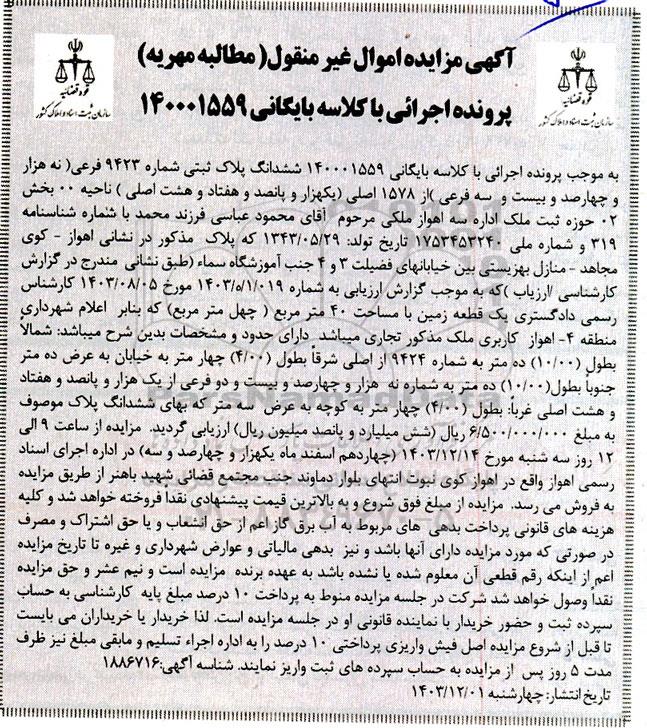 آگهی مزایده اموال غیر منقول( مطالبه مهریه)
پرونده اجرائی با کلاسه بایگانی ۱۴۰۰۰۱۵۵۹
قوه قضائیه
سازمان ثبت اسناد و املاک کشور
قوه قضائیه
سازمان ثبت اسناد و املاک کشور
به موجب پرونده اجرائی با کلاسه بایگانی ۱۴۰۰۰۱۵۵۹ ششدانگ پلاک ثبتی شماره ۹۴۲۳ فرعی( نه هزار
و چهارصد و بیست و سه فرعی )از ۱۵۷۸ اصلی (یکهزار و پانصد و هفتاد و هشت اصلی ) ناحیه ۰۰ بخش
۰۲ حوزه ثبت ملک اداره سه اهواز ملکی مرحوم آقای محمود عباسی فرزند محمد با شماره شناسنامه
۳۱۹ و شماره ملی ۱۷۵۳۴۵۳۲۴۰ تاریخ تولد: ۱۳۴۳/۰۵/۲۹ که پلاک مذکور در نشانی اهواز - کوی
مجاهد - منازل بهزیستی بین خیابانهای فضیلت ۳ و ۴ جنب آموزشگاه سماء (طبق نشانی مندرج در گزارش
کارشناسی /ارزیاب )که به موجب گزارش ارزیابی به شماره ۱۴۰۳/۵/۱/۰۱۹ مورخ ۱۴۰۳/۰۸/۰۵ کارشناس
رسمی دادگستری یک قطعه زمین با مساحت ۴۰ متر مربع ( چهل متر مربع) که بنابر اعلام شهرداری
منطقه ۴- اهواز کاربری ملک مذکور تجاری میباشد. دارای حدود و مشخصات بدین شرح میباشد: شمالاً
بطول (۱۰/۰۰) ده متر به شماره ۹۴۲۴ از اصلی شرقاً بطول (۴/۰۰) چهار متر به خیابان به عرض ده متر
جنوباً بطول(۱۰/۰۰) ده متر به شماره نه هزار و چهارصد و بیست و دو فرعی از یک هزار و پانصد و هفتاد
و هشت اصلی غرباً: بطول (۴/۰۰) چهار متر به کوچه به عرض سه متر که بهای ششدانگ پلاک موصوف
به مبلغ ۶/۵۰۰/۰۰۰/۰۰۰ ریال (شش میلیارد و پانصد میلیون ریال) ارزیابی گردید. مزایده از ساعت ۹ الی
۱۲ روز سه شنبه مورخ ۱۴۰۳/۱۲/۱۴ (چهاردهم اسفند ماه یکهزار و چهارصد و سه) در اداره اجرای اسناد
رسمی اهواز واقع در اهواز کوی نبوت انتهای بلوار دماوند جنب مجتمع قضائی شهید باهنر از طریق مزایده
به فروش می رسد. مزایده از مبلغ فوق شروع و به بالاترین قیمت پیشنهادی نقدا فروخته خواهد شد و کلیه
هزینه های قانونی پرداخت بدهی های مربوط به آب برق گاز اعم از حق انشعاب و یا حق اشتراک و مصرف
در صورتی که مورد مزایده دارای آنها باشد و نیز بدهی مالیاتی و عوارض شهرداری و غیره تا تاریخ مزایده
اعم از اینکه رقم قطعی آن معلوم شده یا نشده باشد به عهده برنده مزایده است و نیم عشر و حق مزایده
نقداً وصول خواهد شد شرکت در جلسه مزایده منوط به پرداخت ۱۰ درصد مبلغ پایه کارشناسی به حساب
سپرده ثبت و حضور خریدار یا نماینده قانونی او در جلسه مزایده است. لذا خریدار یا خریداران می بایست
تا قبل از شروع مزایده اصل فیش واریزی پرداختی ۱۰ درصد را به اداره اجراء تسلیم و مابقی مبلغ نیز ظرف
مدت ۵ روز پس از مزایده به حساب سپرده های ثبت واریز نمایند. شناسه آگهی:۱۸۸۶۷۱۶
تاریخ انتشار: چهارشنبه ۱۴۰۳/۱۲/۰۱
ParsNamadData